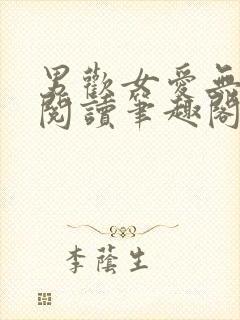 男歡女愛無
閱讀筆趣閣
李蔭生